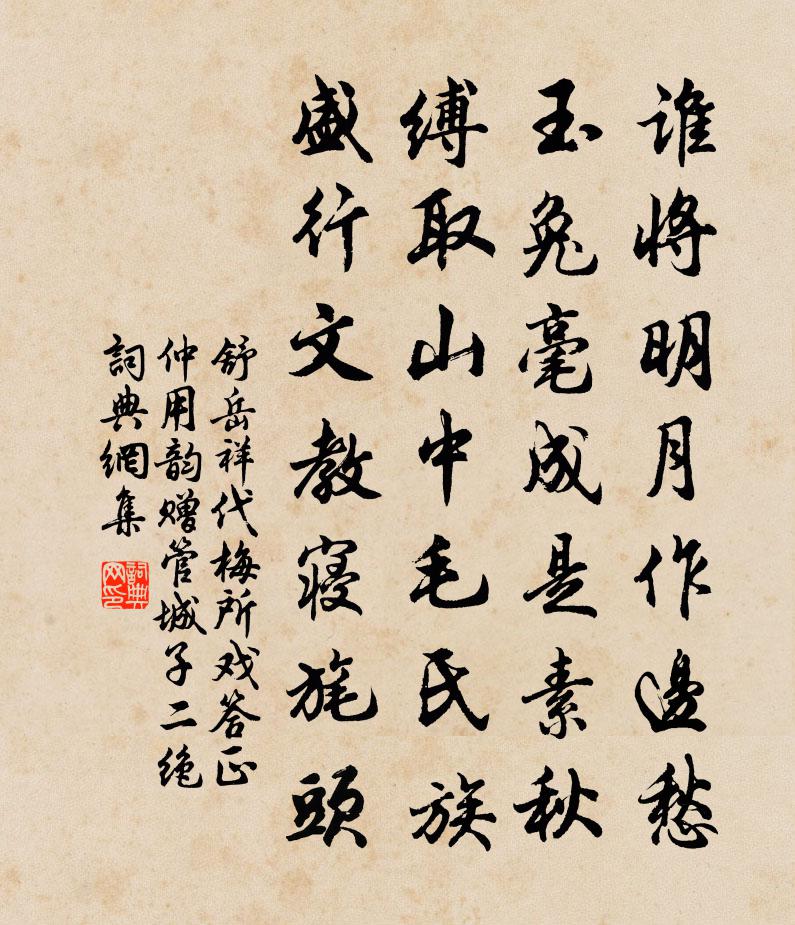 誰將明月作邊愁
玉兔毫成是素秋
縛取山中毛氏族
盛行文教寢旄頭
舒岳祥代梅所戏答正
仲用韵赠管城子二绝
詞典網集
詞典网印